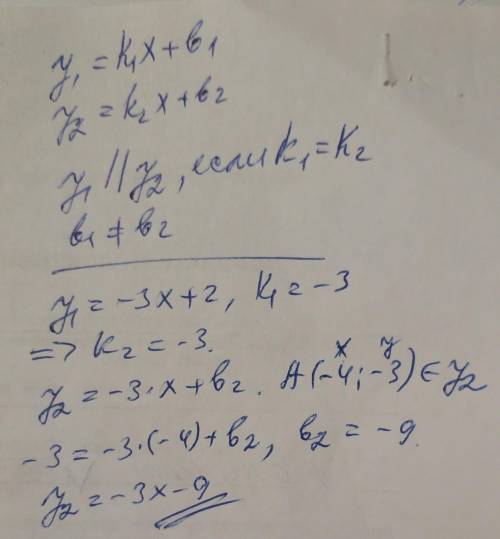 y₁ = k₁x + b₁
y₂ = k₂x + b₂
y₁ // y₂, если k₁ = k₂
b₁ ≠ b₂
y₁ = -3x + 2, k₁ = -3
=> k₂ = -3.
x y
y₂ = -3·x + b₂. A(-4; -3) ∈ y₂
-3 = -3·(-4) + b₂, b₂ = -9.
y₂ = -3x - 9